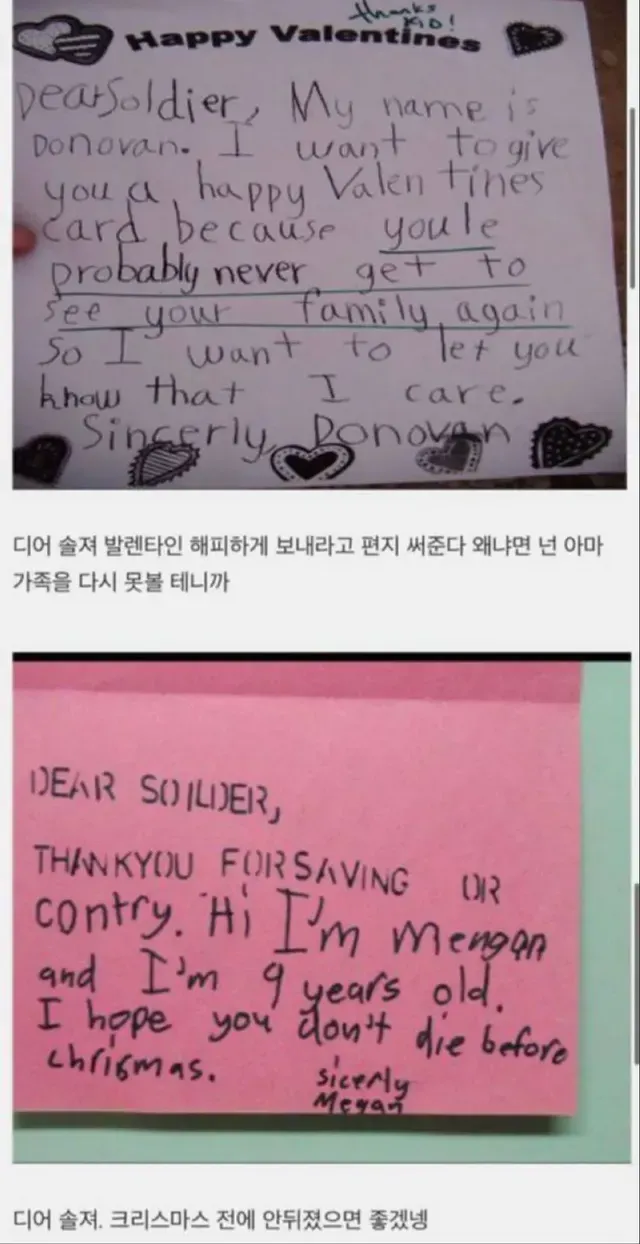 thanks
KID!
Happy Valentines
Dear Soldier, My name is
Donovan. I want to give
you a happy Valentines
card because youle
probably never get to
see your family again
So I want to let you
know that I care.
Sincerly, Donovan
디어 솔져 발렌타인 해피하게 보내라고 편지 써준다 왜냐면 넌 아마
가족을 다시 못볼 테니까
DEAR SOILDER,
THANKYOU FOR SAVING OR
contry. Hi I'm Mengan
and I'm 9 years old.
I hope you don't die before
chrismas.
sicerly
Megan
디어 솔져. 크리스마스 전에 안뒤졌으면 좋겠넹